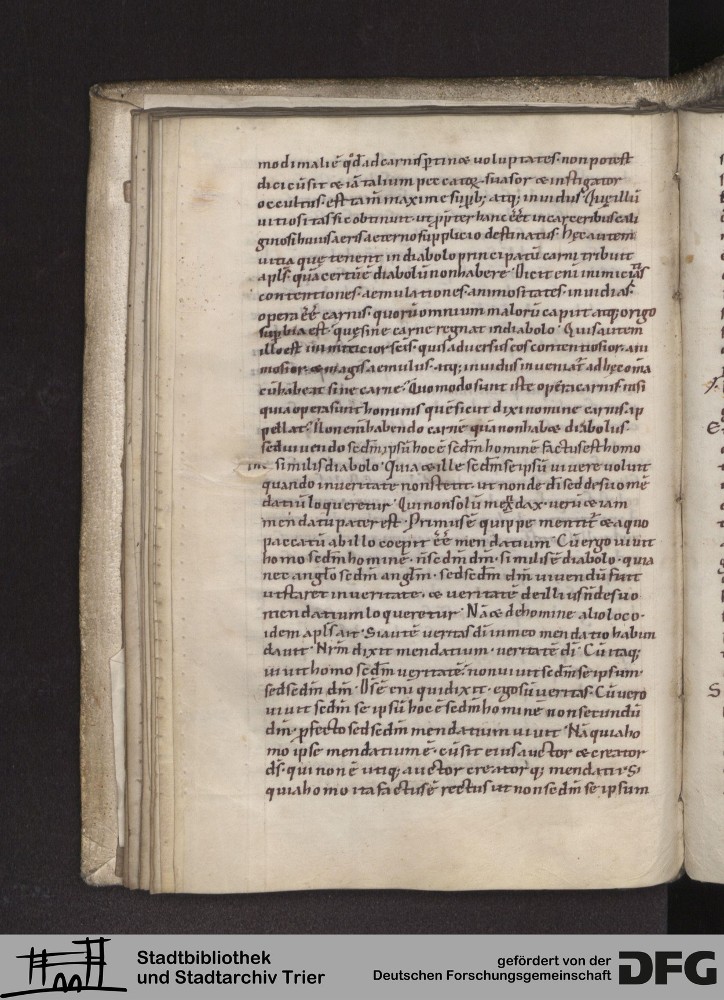 modi malie͂ qd̛ ad carnis ꝑtin& uoluptates· non potest
dici cu͂ sit & ia͂ talium peccatoꝝ suasor & instigator
occultus· est tam͂ maxime supb; atq; inuidus· Que͂ illu͂
uitiositas sic obtinuit· ut ꝓpter hanc e͂e͂t incarceribus cali
ginosi huius aeris aeterno supplicio destinatus· Hęc autem
uitia quę tenent in diabolo principatu͂ carni tribuit
apl̅s· qua͂ certu͂ e͂ diabolu͂ non habere· Dicit eni͂ inimicitias
contentiones· aemulationes· animositates· inuidias·
opera e͂e͂ carnis· quoru͂ omnium maloru͂ caput atq; origo
supbia est· quę sine carne regnat in diabolo· Quis autem
illo est inimicicior sc̅is· quis aduersus eos contentiosior· ani
mosior· & magis aemulus· atq; inuidus inuenit̛· ad hęc om̅ia
cu͂ habeat sine carne· Quomodo sunt iste opera carnis nisi
quia opera sunt hominis que͂ sicut dixi nomine carnis ap
pellat· Non eni͂ habendo carne͂ qua͂ non hab& diabolus·
sed uiuendo scd̅m ipsu͂ hoc e͂ scd̅m homine͂ factus est homo
similis diabolo· Quia & ille scd̅m se ipsu͂ uiuere uoluit
quando in ueritate non stetit· ut non de di̅ sed de suo me͂
datiu͂ loqueretur· Qui non solu͂ mendax· ueru͂ & iam
mendatii pater est· Primus e͂ quippe mentit̛ & a quo
peccatu͂ ab illo coepit e͂e͂ mendatium· Cu͂ ergo uiuit
homo scd̅m homine͂· n̅ scd̅m dm̅· similis e͂ diabolo· quia
nec anglo scd̅m anglm̅· sed scd̅m dm̅ uiuendu͂ fuit
ut staret in ueritate· & ueritate͂ de illius n̅ de suo
mendatium loqueretur· Na͂ & de homine alio loco·
idem apl̅s ait· Si aute͂ ueritas di̅ in meo mendatio habun
dauit· Nr̅m dixit mendatium· ueritate͂ di̅· Cu͂ itaq;
uiuit homo scd̅m ueritate͂· non uiuit scd̅m se ipsum·
sed scd̅m dm̅· D̅s e͂ eni͂ qui dixit· ego su͂ ueritas· Cu͂ uero
uiuit scd̅m se ipsu͂ hoc e͂ scd̅m homine͂ non secundu͂
dm̅· ꝓfecto scd̅m mendatium uiuit· Na͂ quia ho
mo ipse mendatium e͂· cu͂ sit eius auctor & creator
d̅s· qui non e͂ utiq; auctor creatorq; mendatii· S;
quia homo ita factus e͂ rectus ut non scd̅m se ipsum
Stadtbibliothek
und Stadtarchiv Trier
gefördert von der
Deutschen Forschungsgemeinschaft
DFG